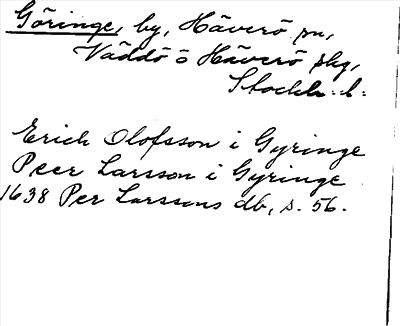 Göringe, by, Häverö sn,
Väddö o Häverö skg,
Stockh. l:
Erich Olofsson i Gyringe
Peer Larsson i Gyringe
1638 Per Larssons db, s. 56.